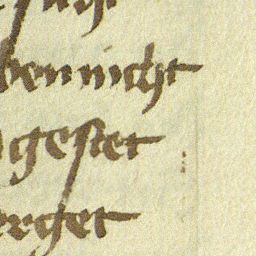 ben nicht
gestet
erget